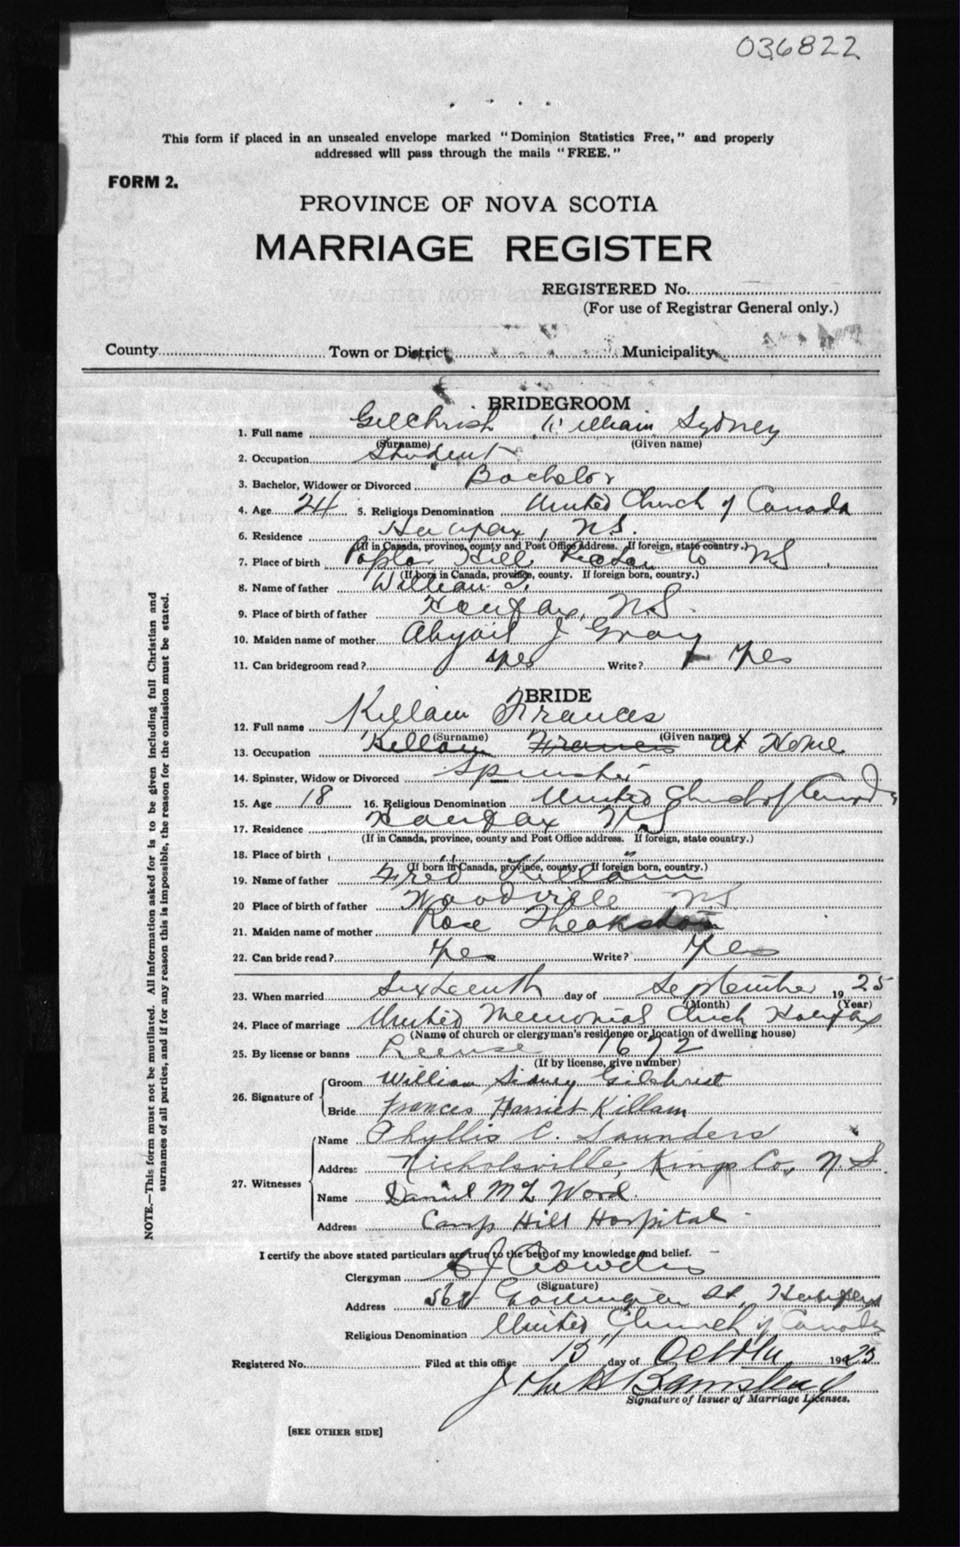 036822
This form if placed in an unsealed envelope marked "Dominion Statistics Free," and properly
addressed will pass through the mails "FREE."
FORM 2.
PROVINCE OF NOVA SCOTIA
MARRIAGE REGISTER
REGISTERED No.
(For use of Registrar General only.)
County Town or District Municipality
BRIDEGROOM
1. Full name Gilchrist William Sydney
(Surname) (Given name)
2. Occupation Student
3. Bachelor, Widower or Divorced Bachelor
4. Age 24 5. Religious Denomination United Church of Canada
6. Residence Halifax, N.S.
(If in Canada, province, county and Post Office Address. If foreign, state country.)
7. Place of birth Poplar Hill Pictou Co N.S.
(If born in Canada, province, county. If foreign born, country.)
8. Name of father William
9. Place of birth of father Halifax, N.S.
10. Maiden name of mother Abigail J Gray
11. Can bridegroom read? Yes Write? Yes
BRIDE
12. Full name Killam Frances
(Surname) (Given name)
13. Occupation Killam Frances At Home
14. Spinster, Widow or Divorced Spinster
15. Age 18 16. Religious Denomination United Church of Canada
17. Residence Halifax NS
(If in Canada, province, county and Post Office address. If foreign, state country.)
18. Place of birth "
(If born in Canada, province, county. If foreign born, country.)
19. Name of father Fred Killam
20 Place of birth of father Woodville N.S.
21. Maiden name of mother Rose Theakston
22. Can bride read? Yes Write? Yes
23. When married Sixteenth day of September 1925
(Month) (Year)
24. Place of marriage United Memorial Church Halifax
(Name of church or clergyman's residence or location of dwelling house)
25. By license or banns License 1672
(If by license, give number)
26. Signature of
Groom William Sidney Gilchrist
Bride Frances Harriet Killam
27. Witnesses
Name Phyllis C. Saunders
Address Nicholsville, Kings Co., N.S.
Name Daniel Word
Address Camp Hill Hospital
I certify the above stated particulars are true to the best of my knowledge and belief.
Clergyman C J Crowdis
(Signature)
Address St, Halifax
Religious Denomination United Church of Canada
Registered No. Filed at this office 15 day of October 1925
John H Barnstead
Signature of Issuer of Marriage Licenses.
[SEE OTHER SIDE]
NOTE.—This form must not be mutilated. All information asked for is to be given including full Christian and
surnames of all parties, and if for any reason this is impossible, the reason for the omission must be stated.